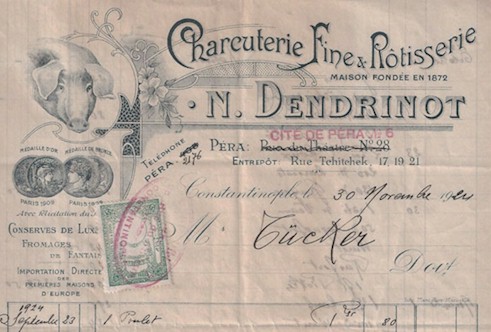 Charcuterie Fine & Rôtisserie
MAISON FONDÉE EN 1872
N. DENDRINOT
CITÉ DE PÉRA
PÉRA: Rue du Théatre No 28
ENTREPÔT: Rue Tchitchek, 17, 19, 21
TÉLÉPHONE
PÉRA
2176
MÉDAILLE D'OR
MÉDAILLE DE
PARIS 1909
PARIS
Avec félicitation du
Constantinople, le 30 Novembre 1924
M Tücker
Doit
CONSERVES DE LUXE
FROMAGES
DE FANTAISIE
IMPORTATION DIRECTE
DES PREMIÈRES MAISONS
D'EUROPE
1924
Septembre 23 1 Poulet Ptr 80